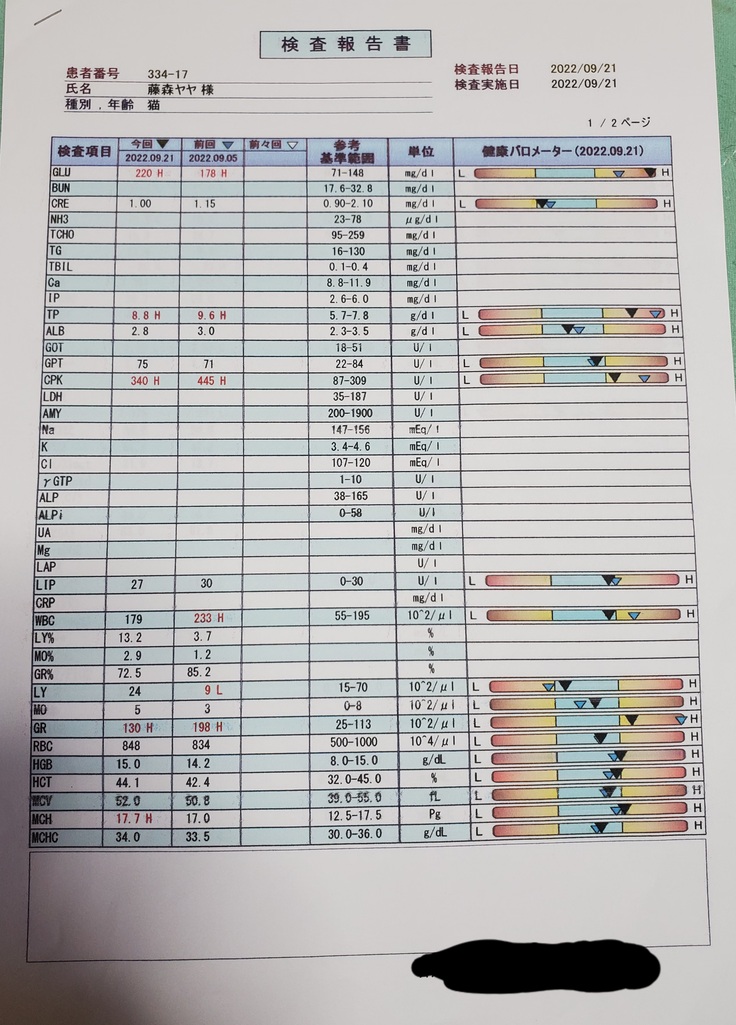 検査報告書
患者番号 334-17 検査報告日 2022/09/21
氏名 藤森ヤヤ 様 検査実施日 2022/09/21
種別，年齢 猫
1 / 2 ページ
検査項目 今回▼ 前回▼ 前々回▽ 参考基準範囲 単位 健康バロメーター(2022.09.21)
2022.09.21 2022.09.05
GLU 220 H 178 H 71-148 mg/dl L H
BUN 17.6-32.8 mg/dl
CRE 1.00 1.15 0.90-2.10 mg/dl L H
NH3 23-78 μg/dl
TCHO 95-259 mg/dl
TG 16-130 mg/dl
TBIL 0.1-0.4 mg/dl
Ca 8.8-11.9 mg/dl
IP 2.6-6.0 mg/dl
TP 8.8 H 9.6 H 5.7-7.8 g/dl L H
ALB 2.8 3.0 2.3-3.5 g/dl L H
GOT 18-51 U/l
GPT 75 71 22-84 U/l L H
CPK 340 H 445 H 87-309 U/l L H
LDH 35-187 U/l
AMY 200-1900 U/l
Na 147-156 mEq/l
K 3.4-4.6 mEq/l
Cl 107-120 mEq/l
γGTP 1-10 U/l
ALP 38-165 U/l
ALPi 0-58 U/l
UA mg/dl
Mg mg/dl
LAP U/l
LIP 27 30 0-30 U/l L H
CRP mg/dl
WBC 179 233 H 55-195 10^2/μl L H
LY% 13.2 3.7 %
MO% 2.9 1.2 %
GR% 72.5 85.2 %
LY 24 9 L 15-70 10^2/μl L H
MO 5 3 0-8 10^2/μl L H
GR 130 H 198 H 25-113 10^2/μl L H
RBC 848 834 500-1000 10^4/μl L H
HGB 15.0 14.2 8.0-15.0 g/dL L H
HCT 44.1 42.4 32.0-45.0 % L H
MCV 52.0 50.8 39.0-55.0 fL L H
MCH 17.7 H 17.0 12.5-17.5 Pg L H
MCHC 34.0 33.5 30.0-36.0 g/dL L H